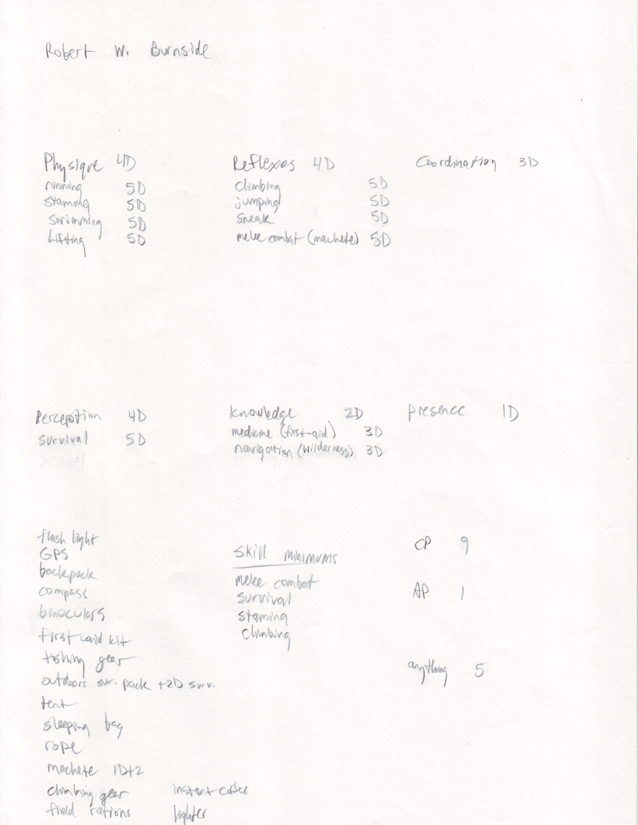 Robert W. Burnside
Physique 4D
running 5D
stamina 5D
swimming 5D
Lifting 5D
Reflexes 4D
climbing 5D
jumping 5D
sneak 5D
melee combat (machete) 5D
Coordination 3D
Perception 4D
survival 5D
knowledge 2D
medicine (first-aid) 3D
navigation (wilderness) 3D
presence 1D
flash light
GPS
backpack
compass
binoculars
first aid kit
fishing gear
outdoors sur. pack +2D surv.
tent
sleeping bag
rope
machete 1D+2
climbing gear
field rations
instant coffee
lighter
skill minimums
melee combat
survival
stamina
climbing
CP 9
AP 1
anything 5